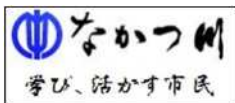 なかつ川
学び、活かす市民